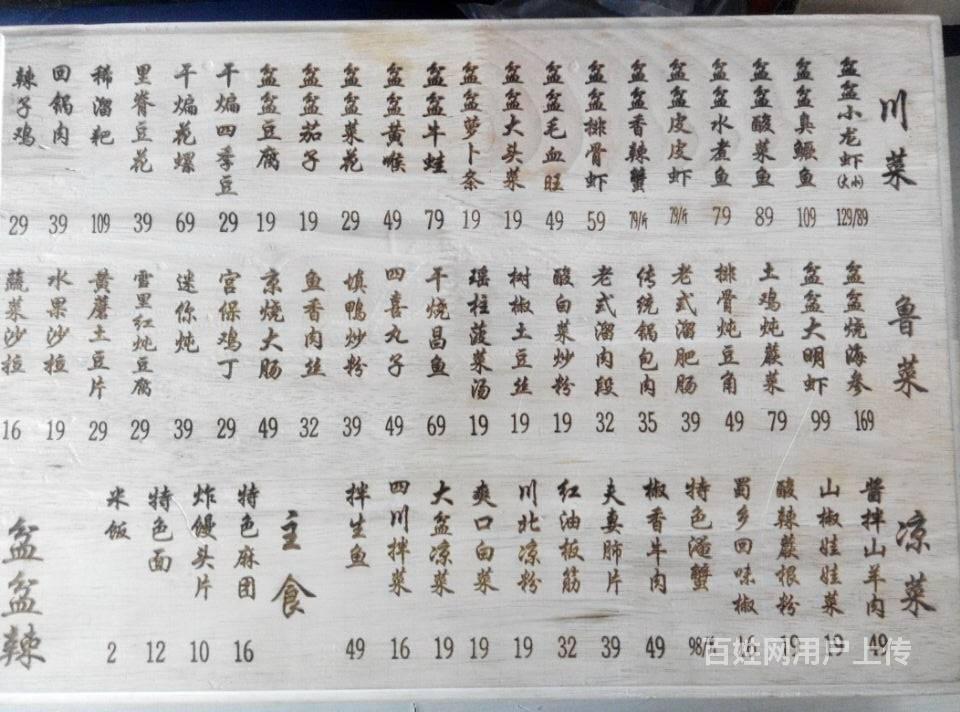 川菜
盆盆小龙虾(大小) 129/89
盆盆臭鳜鱼 109
盆盆酸菜鱼 89
盆盆水煮鱼 79
盆盆皮皮虾 79/斤
盆盆香辣蟹 79/斤
盆盆排骨虾 59
盆盆毛血旺 49
盆盆大头菜 19
盆盆萝卜条 19
盆盆牛蛙 79
盆盆黄喉 49
盆盆菜花 29
盆盆茄子 19
盆盆豆腐 19
干煸四季豆 29
干煸花螺 69
里脊豆花 39
稀溜粑 109
回锅肉 39
辣子鸡 29
鲁菜
盆盆烧海参 169
盆盆大明虾 99
土鸡炖蕨菜 79
排骨炖豆角 49
老式溜肥肠 39
传统锅包肉 35
老式溜肉段 32
酸白菜炒粉 19
树椒土豆丝 19
瑶柱菠菜汤 19
干烧昌鱼 69
四喜丸子 49
填鸭炒粉 39
鱼香肉丝 32
京烧大肠 49
宫保鸡丁 29
迷你炖 39
雪里红炖豆腐 29
黄蘑土豆片 29
水果沙拉 19
蔬菜沙拉 16
凉菜
酱拌山羊肉 49
山椒娃娃菜 19
酸辣蕨根粉 19
蜀乡回味椒 16
特色滋蟹 98/斤
椒香牛肉 49
夫妻肺片 39
红油板筋 32
川北凉粉 19
爽口白菜 19
大盆凉菜 19
四川拌菜 16
拌生鱼 49
主食
特色麻团 16
炸馒头片 10
特色面 12
米饭 2
盆盆辣
百姓网用户上传